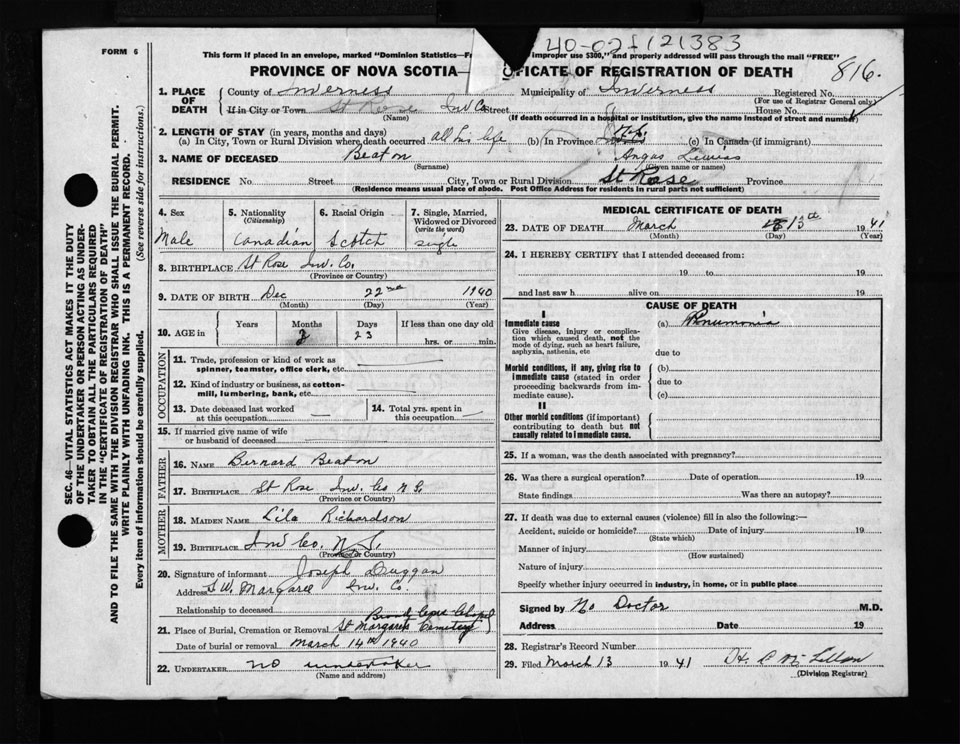 FORM 6
This form if placed in an envelope, marked "Dominion Statistics—F improper use $300," and properly addressed will pass through the mail "FREE"
40-02 121383
816.
PROVINCE OF NOVA SCOTIA— FICATE OF REGISTRATION OF DEATH
1. PLACE OF DEATH
County of Inverness Municipality of Inverness Registered No.
(For use of Registrar General only)
If in City or Town St Rose Inv Co Street House No.
(Name) (If death occurred in a hospital or institution, give name instead of street and number)
2. LENGTH OF STAY (in years, months and days)
(a) In City, Town or Rural Division where death occurred all his life (b) In Province (c) In Canada (if immigrant)
3. NAME OF DECEASED Beaton Angus
(Surname) (Given name or names)
RESIDENCE No. Street City, Town or Rural Division St Rose Province
(Residence means usual place of abode. Post Office Address for residents in rural parts not sufficient)
4. Sex
Male
5. Nationality
(Citizenship)
Canadian
6. Racial Origin
Scotch
7. Single, Married, Widowed or Divorced
(write the word)
single
8. BIRTHPLACE St Rose Inv. Co.
(Province or Country)
9. DATE OF BIRTH Dec 22nd 1940
(Month) (Day) (Year)
10. AGE in
Years Months Days If less than one day old
2 23 hrs. or min.
OCCUPATION
11. Trade, profession or kind of work as
spinner, teamster, office clerk, etc.
12. Kind of industry or business, as cotton-
mill, lumbering, bank, etc.
13. Date deceased last worked
at this occupation
14. Total yrs. spent in
this occupation
15. If married give name of wife
or husband of deceased
FATHER
16. NAME Bernard Beaton
17. BIRTHPLACE St Rose Inv. Co N.S.
(Province or Country)
MOTHER
18. MAIDEN NAME Lila Richardson
19. BIRTHPLACE Inv Co. N.S.
(Province or Country)
20. Signature of informant Joseph Duggan
Address S.W. Margaree Inv. Co.
Relationship to deceased
21. Place of Burial, Cremation or Removal St Margarets Cemetery
Date of burial or removal March 14th 1940
22. UNDERTAKER no undertaker
(Name and address)
MEDICAL CERTIFICATE OF DEATH
23. DATE OF DEATH March 13th 1941
(Month) (Day) (Year)
24. I HEREBY CERTIFY that I attended deceased from:
19 to 19
and last saw h alive on 19
CAUSE OF DEATH
I
Immediate cause (a) Pnumonia
Give disease, injury or complica-
tion which caused death, not the
mode of dying, such as heart failure,
asphyxia, asthenia, etc
due to
Morbid conditions, if any, giving rise to
immediate cause (stated in order
proceeding backwards from im-
mediate cause).
(b)
due to
(c)
II
Other morbid conditions (if important)
contributing to death but not
causally related to immediate cause.
25. If a woman, was the death associated with pregnancy?
26. Was there a surgical operation? Date of operation 19
State findings Was there an autopsy?
27. If death was due to external causes (violence) fill in also the following:—
Accident, suicide or homicide? Date of injury 19
(State which)
Manner of injury
(How sustained)
Nature of injury
Specify whether injury occurred in industry, in home, or in public place
Signed by No Doctor M.D.
Address Date 19
28. Registrar's Record Number
29. Filed March 13 1941
(Division Registrar)
SEC. 46—VITAL STATISTICS ACT MAKES IT THE DUTY
OF THE UNDERTAKER OR PERSON ACTING AS UNDER-
TAKER TO OBTAIN ALL THE PARTICULARS REQUIRED
IN THE "CERTIFICATE OF REGISTRATION OF DEATH"
AND TO FILE THE SAME WITH THE DIVISION REGISTRAR WHO SHALL ISSUE THE BURIAL PERMIT.
WRITE PLAINLY WITH UNFADING INK. THIS IS A PERMANENT RECORD.
Every item of information should be carefully supplied. (See reverse side for instructions.)